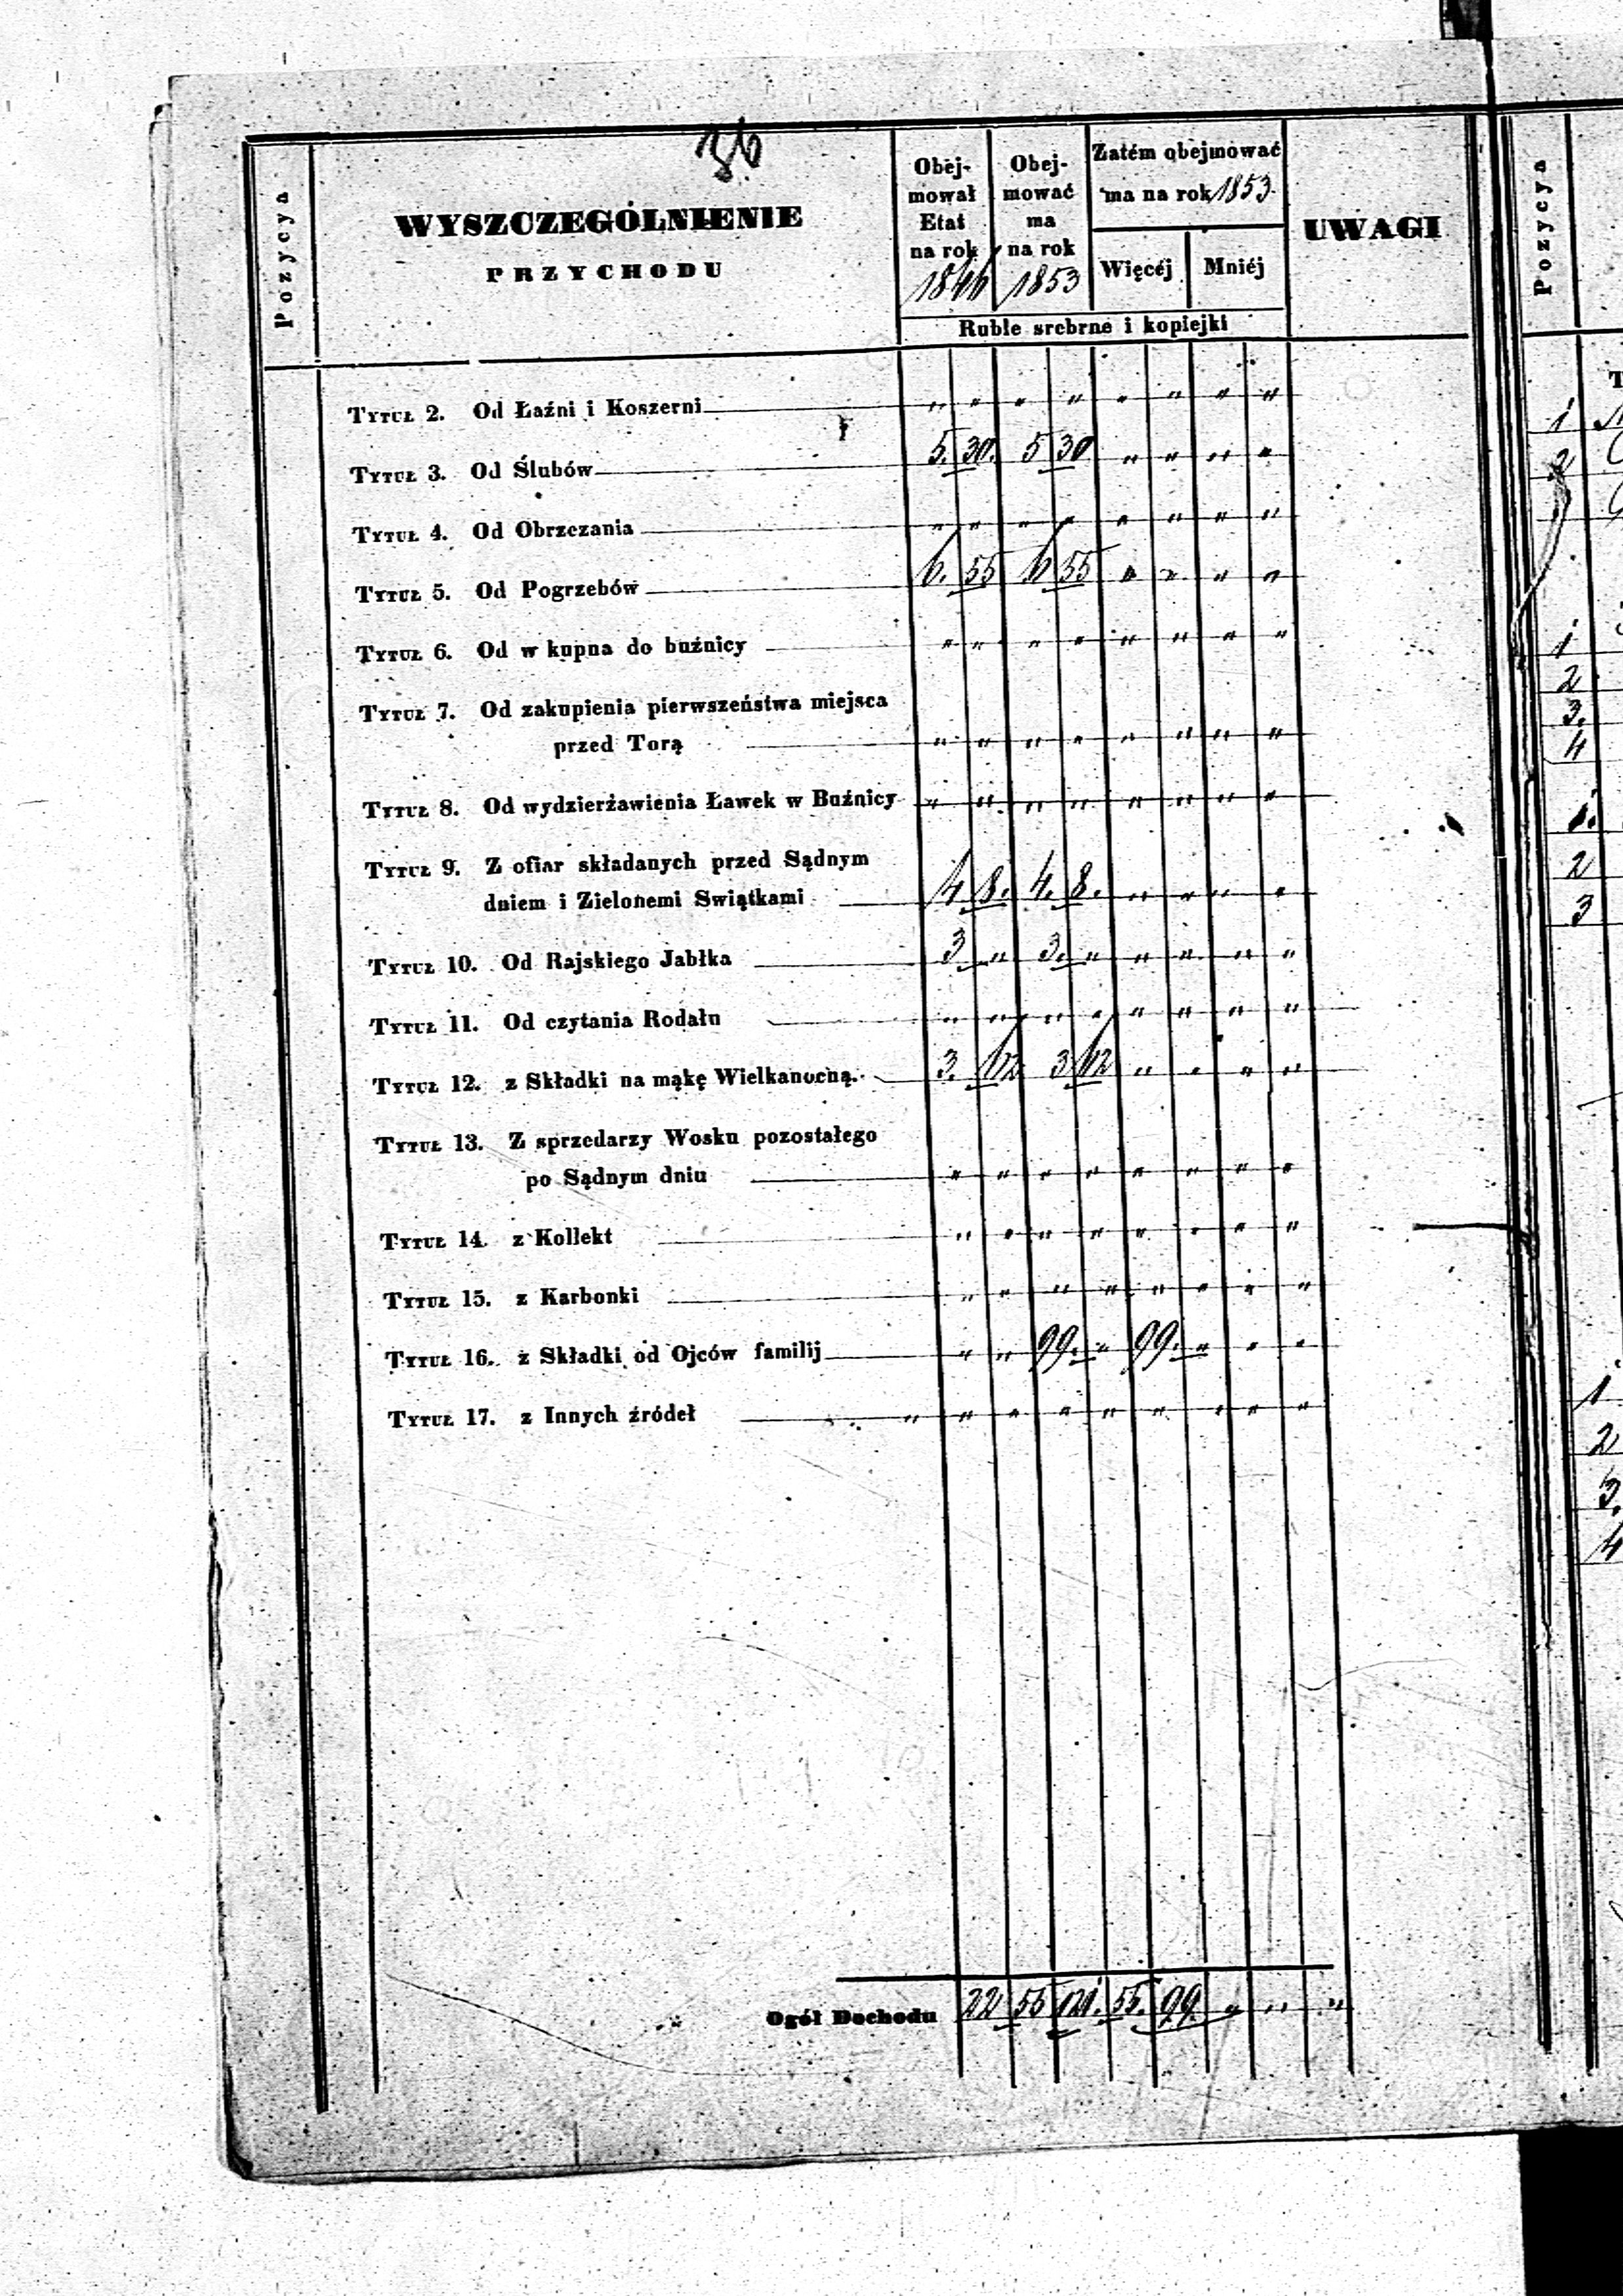 36
Pozycya
WYSZCZEGÓLNIENIE
PRZYCHODU
Obej-
mował
Etat
na rok
1846
Obej-
mować
ma
na rok
1853
Zatém obejmować
ma na rok 1853.
Więcéj Mniéj
Ruble srebrne i kopiejki
UWAGI
Pozycya
Tytuł 2. Od Łaźni i Koszerni „ „ „ „ „ „ „ „
Tytuł 3. Od Ślubów 5. 30. 5 30 „ „ „ „
Tytuł 4. Od Obrzezania „ „ „ „ „ „ „ „
Tytuł 5. Od Pogrzebów 6. 55 6 55 „ „ „ „
Tytuł 6. Od w kupna do buźnicy „ „ „ „ „ „ „ „
Tytuł 7. Od zakupienia pierwszeństwa miejsca
przed Torą „ „ „ „ „ „ „ „
Tytuł 8. Od wydzierżawienia Ławek w Buźnicy „ „ „ „ „ „ „ „
Tytuł 9. Z ofiar składanych przed Sądnym
dniem i Zielonemi Swiątkami 4 8. 4. 8. „ „ „ „
Tytuł 10. Od Rajskiego Jabłka 3 „ 3. „ „ „ „ „
Tytuł 11. Od czytania Rodału „ „ „ „ „ „ „ „
Tytuł 12. z Składki na mąkę Wielkanocną. 3. 62 3 62 „ „ „ „
Tytuł 13. Z sprzedarzy Wosku pozostałego
po Sądnym dniu „ „ „ „ „ „ „ „
Tytuł 14. z Kollekt „ „ „ „ „ „ „ „
Tytuł 15. z Karbonki „ „ „ „ „ „ „ „
Tytuł 16. z Składki od Ojców familij „ „ 99. „ 99. „ „ „
Tytuł 17. z Innych źródeł „ „ „ „ „ „ „ „ „
Ogół Dochodu 22 55 121. 55. 99. „ „ „
1
2
1
2
3.
4
1.
2
3
1
2
3.
4